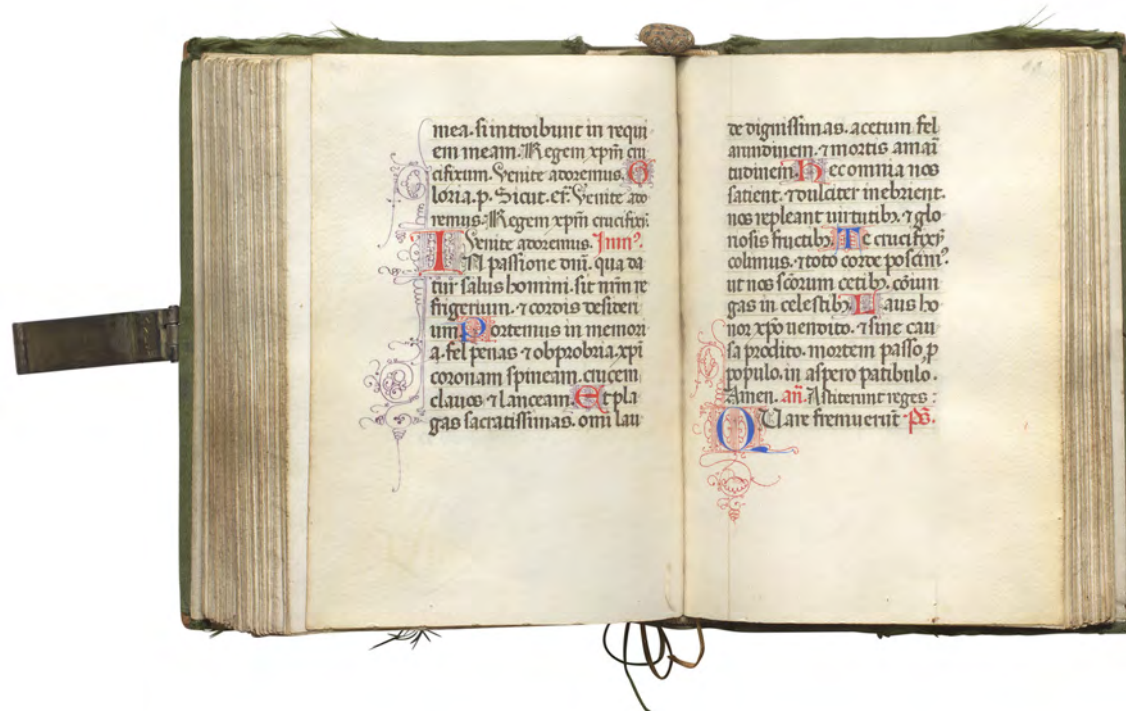 mea. si introibunt in requi
em meam. Regem xp̄m cru
cifixum. Venite adoremus. G
loria. p. Sicut. et̄. Venite ado
remus. Regem xp̄m crucifixū.
Venite adoremus. Jmn⁹.
IN passione dn̄i. qua da
tur salus homini. sit nr̄m re
frigerium. ⁊ cordis desideri
um. Portemus in memori
a. fel penas ⁊ obprobria. xp̄i
coronam spineam. crucem
clauos ⁊ lanceam. Et pla
gas sacratissimas. omī lau
de dignissimas. acetum fel
arundinem. ⁊ mortis amari
tudinem. Hec omnia nos
satient. ⁊ dulciter inebrient.
nos repleant uirtutibꝫ. ⁊ glo
riosis fructibꝫ. Te crucifixū
colimus. ⁊ toto corde poscim⁹.
ut nos sc̄orum cetibꝫ. cōiun
gas in celestibꝫ. Laus ho
nor xp̄o uendito. ⁊ sine cau
sa prodito. mortem passo, ꝓ
populo. in aspero patibulo.
Amen. an̄. Astiterunt reges :
QUare fremuerūt ps̄.